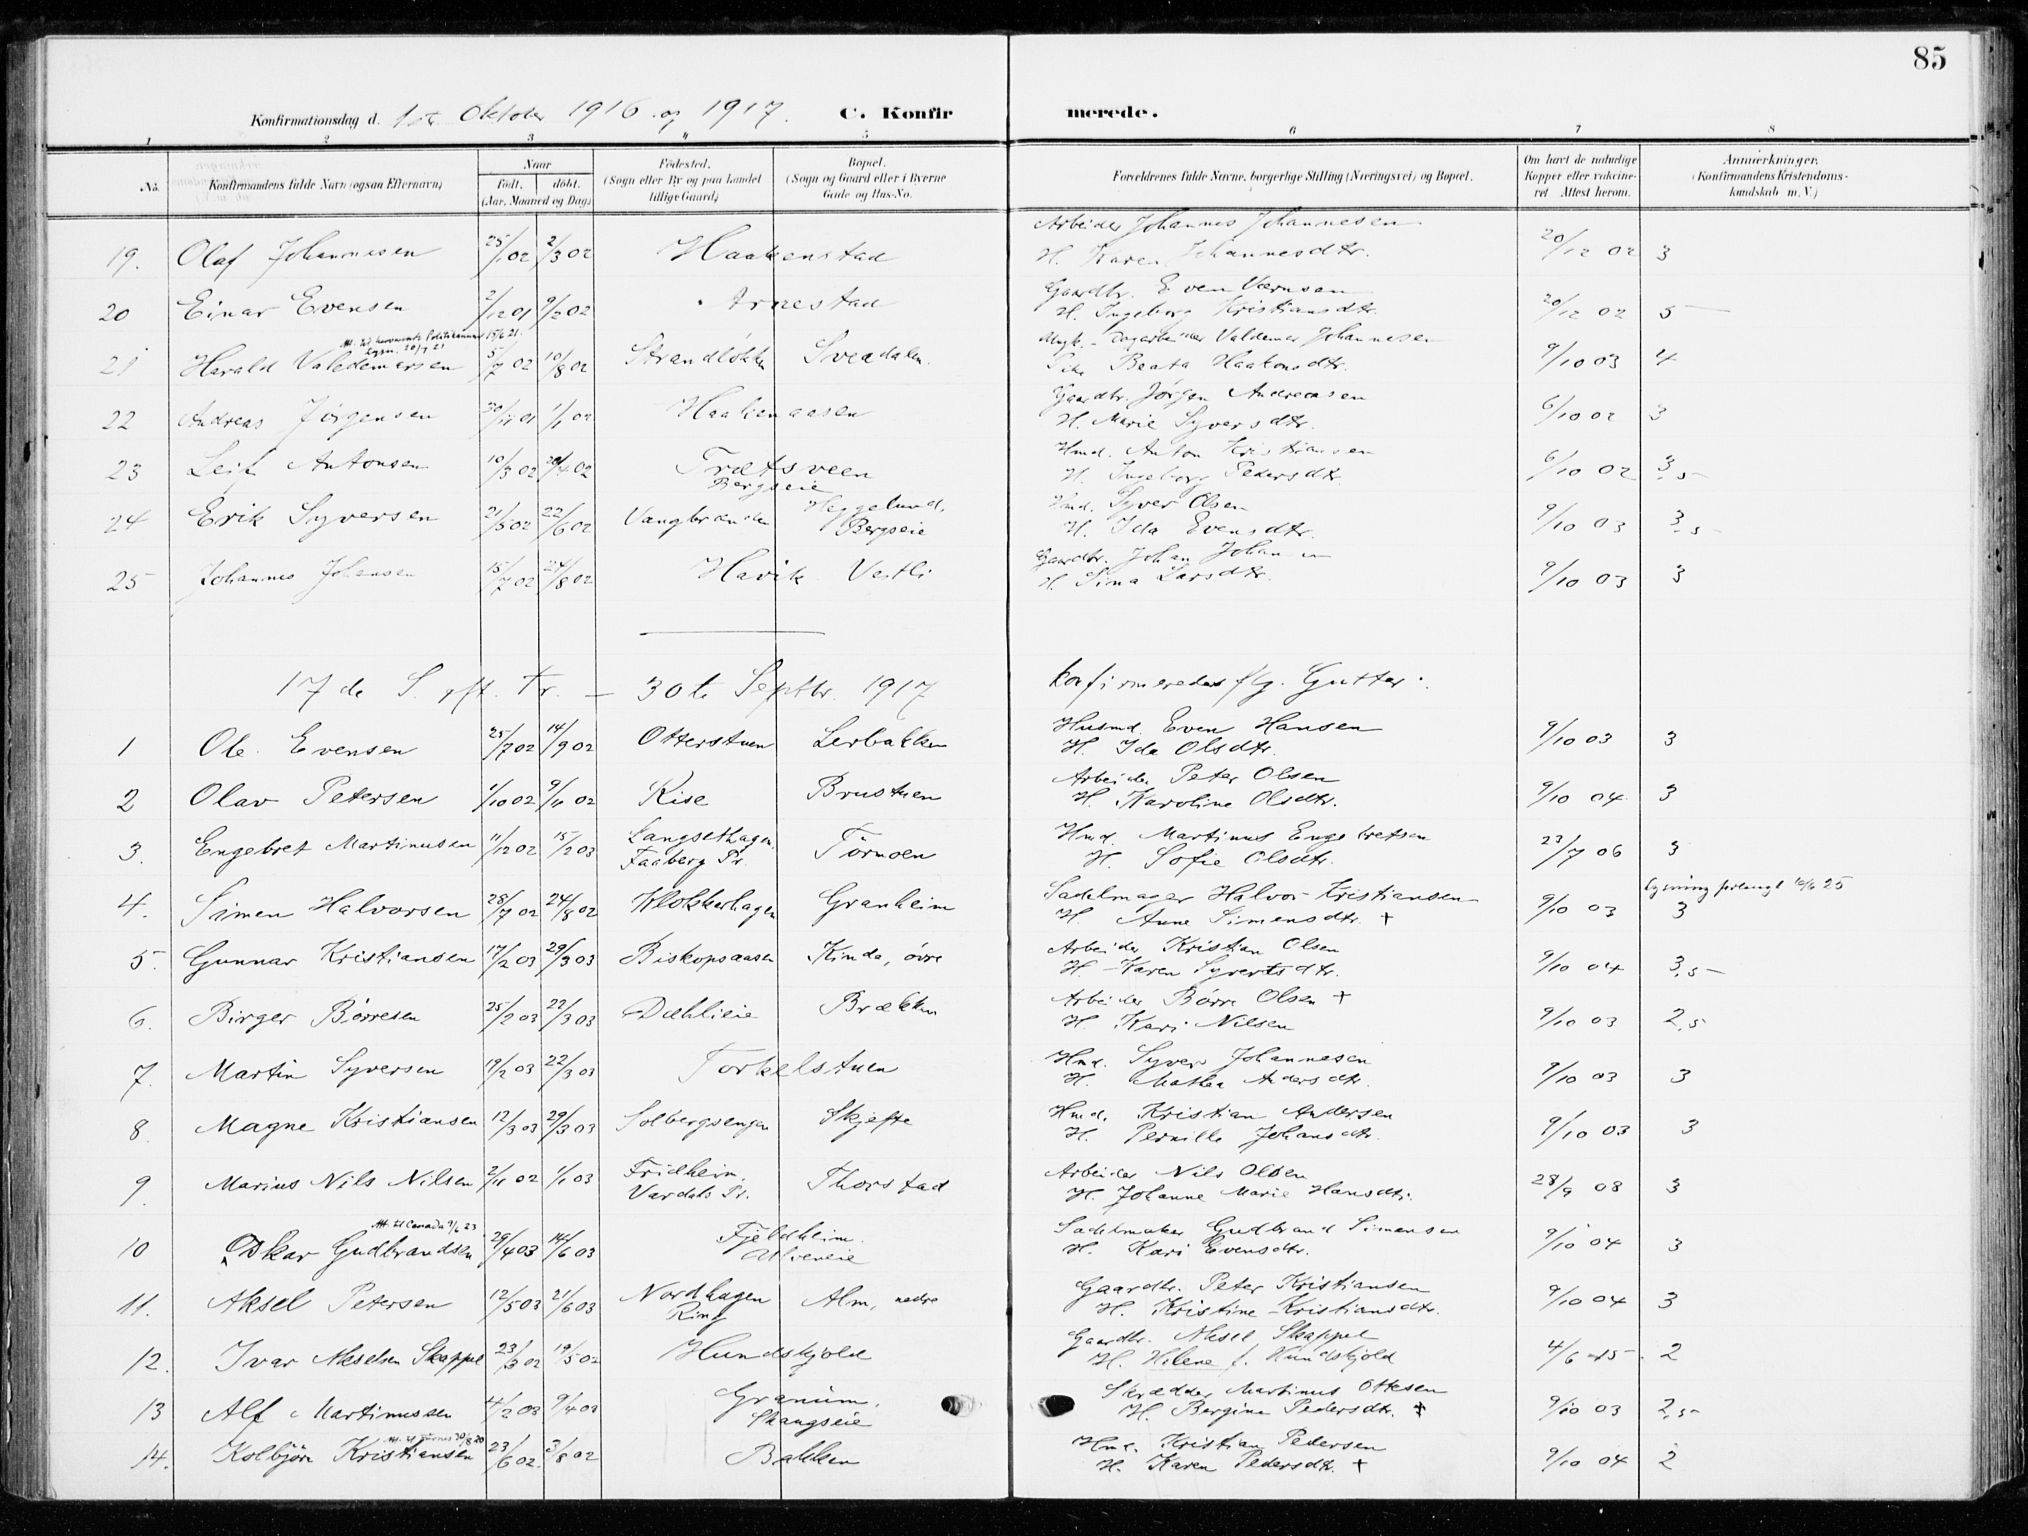 85
Konfirmationsdag d. 1ste Oktober 1916 og 1917. C. Konfirmerede.
1 2 3 4 5 6 7 8
No. Konfirmandens fulde Navn (ogsaa Efternavn) Naar født. døbt. (Aar, Maaned og Dag) Fødested. (Sogn eller By og paa Landet tillige Gaard) Bopæl. (Sogn og Gaard eller i Byerne Gade og Hus-No. Forældrenes fulde Navne, borgerlige Stilling (Næringsvei) og Bopæl. Om havt de naturlige Kopper eller vakcineret. Attest herom. Anmærkninger. (Konfirmandens Kristendomskundskab m. V.)
Arbeider Johannes Johannesen
19. Olaf Johannesen 25/1 02 2/3 02 Haakenstad H. Karen Johannesdtr. 20/12 02 3
Gaardbr. Even Værnsen
20 Einar Evensen 2/12 01 9/2 02 Arnestad H. Ingeborg Kristiansdtr. 20/12 02 3
Ungk. - Dagarbeider Valdemar Johannesen
21 Harald Valdemarsen 5/7 02 10/8 02 Strandløkken Sveadalen. Pike Beata Haakonsdtr. 9/10 03 4
Gaardbr. Jørgen Andreasen
22 Andreas Jørgensen 30/11 01 1/1 02 Haakenaasen H. Marie Syversdtr. 6/10 02 3
Hmd. Anton Kristiansen
23 Leif Antonsen 10/3 02 20/4 02 Trætsveen Bergseie H. Ingeborg Pedersdtr. 6/10 02 3,5
Hmd. Syver Olsen
24 Erik Syversen 21/5 02 22/6 02 Vangbraaten Heggelund, Bergseie H. Ida Evensdtr. 9/10 03 3,5
Gaardbr. Johan Johansen
25 Johannes Johansen 15/7 02 24/8 02 Havik Vestli H. Sina Larsdtr. 9/10 03 3
17de S. eft. Tr. – 30te Septbr. 1917 konfirmeredes flg. Gutter:
Husmd. Even Hansen
1 Ole Evensen 25/7 02 14/9 02 Otterstuen Lerbakken H. Ida Olsdtr. 9/10 03 3
Arbeider Peter Olsen
2 Olav Petersen 1/10 02 9/11 02 Rise Brustuen H. Karoline Olsdtr. 9/10 04 3
Hmd. Martinus Engebretsen
3. Engebret Martinusen 11/12 02 15/2 03 Langsethagen, Faaberg Pr. Tørmoen H. Sofie Olsdtr. 23/7 06 3
Sadelmager Halvor Kristiansen lysning forlangt 10/6 25
4. Simen Halvorsen 28/7 02 24/8 02 Klokkerhagen Granheim H. Anne Simensdtr. + 9/10 03 3
Arbeider Kristian Olsen
5. Gunnar Kristiansen 17/2 03 29/3 03 Biskopsaasen Kinda, øvre H. Karen Syvertsdtr. 9/10 04 3,5
Arbeider Børre Olsen +
6. Birger Børresen 25/2 03 22/3 03 Dæhlieie Brækken H. Kari Nilsen 9/10 03 2,5
Hmd. Syver Johannesen
7. Martin Syversen 19/2 03 22/3 03 Torkelstuen H. Mathea Andersdtr. 9/10 03 3
Hmd. Kristian Andersen
8. Magne Kristiansen 12/3 03 29/3 03 Solbergsengen Skjefte H. Pernille Johansdtr. 9/10 03 3
Arbeider Nils Olsen
9. Marius Nils Nilsen 2/11 02 1/1 03 Fridheim, Vardals Pr. Thorstad H. Johanne Marie Hansdtr. 28/9 08 3
Att. til Canada 9/6 23 Sadelmaker Gudbrand Simensen
10 Oskar Gudbrandsen 29/4 03 14/6 03 Fjeldheim. Alveneie H. Kari Evensdtr. 9/10 04 3
Gaardbr. Peter Kristiansen
11. Aksel Petersen 12/5 03 21/6 03 Nordhagen Ring Alm, nedre H. Kristine Kristiansdtr. 9/10 04 3
Gaardbr. Aksel Skappel
12. Ivar Akselsen Skappel 23/3 02 19/5 02 Hundskjold H. Helene f. Hundskjold 4/6 15 2
Skrædder Martinus Ottesen
13 Alf Martinussen 4/2 03 9/4 03 Granum, Skangseie H. Bergine Pedersdtr. + 9/10 03 2,5
Hmd. Kristian Pedersen
14. Kolbjørn Kristiansen 23/6 02 3/8 02 Bakken H. Karen Pedersdtr. + 9/10 04 2